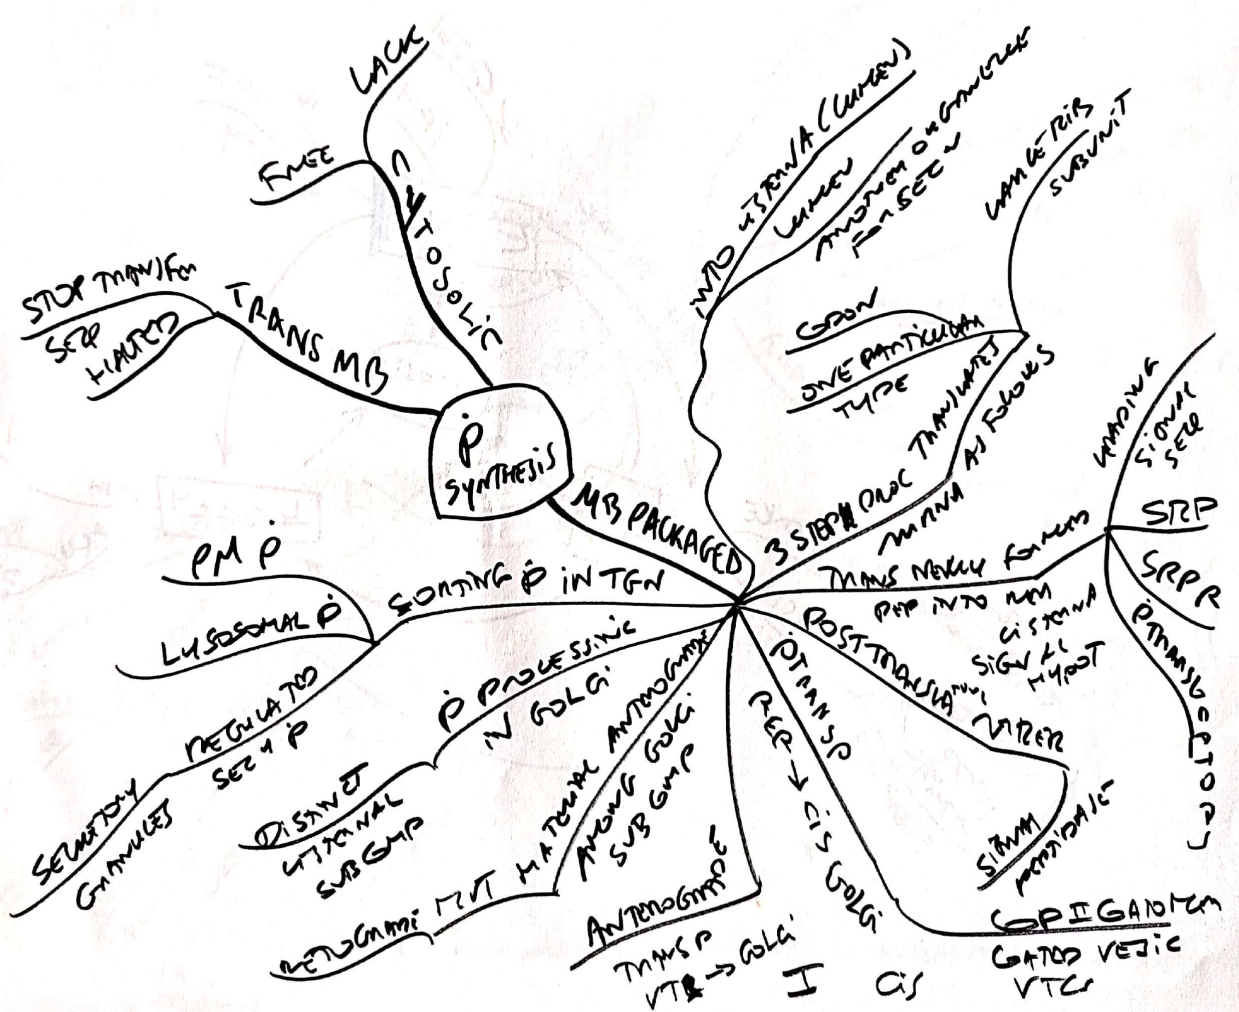 Ṗ
SYNTHESIS
CYTOSOLIC
LACK
FREE
TRANS MB
STOP TRANSFER
SEQ
HALTED
MB PACKAGED
INTO CISTERNA (LUMEN)
LUMEN
ANOTHER ORGANELLE
FOR SEC N
3 STEP PROC TRANSLATES
MRNA AS FOLLOWS
LARGE RIB
SUBUNIT
ONE PARTICULAR
TYPE
TRANS NEWLY FORMED
PEP INTO RER
CISTERNA
SIGNAL
HYPOT
LEADING
SIGNAL
SEQ
SRP
SRP R
Ṗ TRANSLOCATORS
POST TRANSLATIONAL
SIGNAL
PEPTIDASE
Ṗ TRANSP
RER → CIS GOLGI
COP II COATOMER
COATED VESIC
VTCs
ANTEROGRADE
TRANSP
VTC → GOLGI
I CIS
MVT MATERIAL ANTEROGRADE
AMONG GOLGI
SUB CMP
RETOGRADE
Ṗ PROCESSING
IN GOLGI
DISTINCT
CISTERNAL
SUB CMP
SORTING Ṗ IN TGN
PM Ṗ
LYSOSOMAL Ṗ
REGULATED
SEC Y Ṗ
SECRETORY
GRANULES